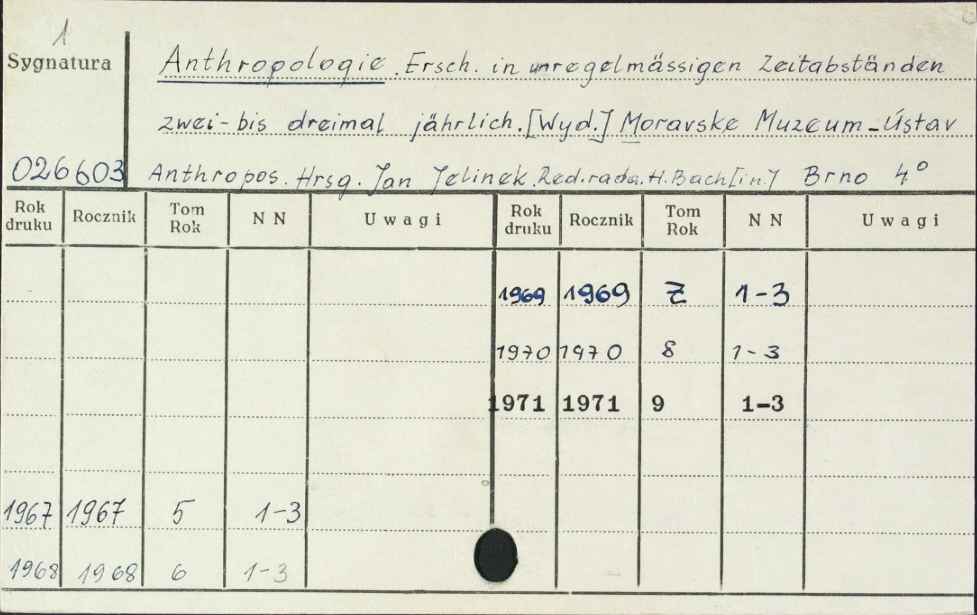 1
Sygnatura
Anthropologie. Ersch. in unregelmässigen Zeitabständen
zwei- bis dreimal jährlich. [Wyd.] Moravske Muzeum - Ústav
026603 Anthropos. Hrsg. Jan Jelinek. Red. rada. H. Bach [in.] Brno 4°
Rok druku Rocznik Tom Rok NN Uwagi Rok druku Rocznik Tom Rok NN Uwagi
1969 1969 7 1-3
1970 1970 8 1-3
1971 1971 9 1-3
1967 1967 5 1-3
1968 1968 6 1-3